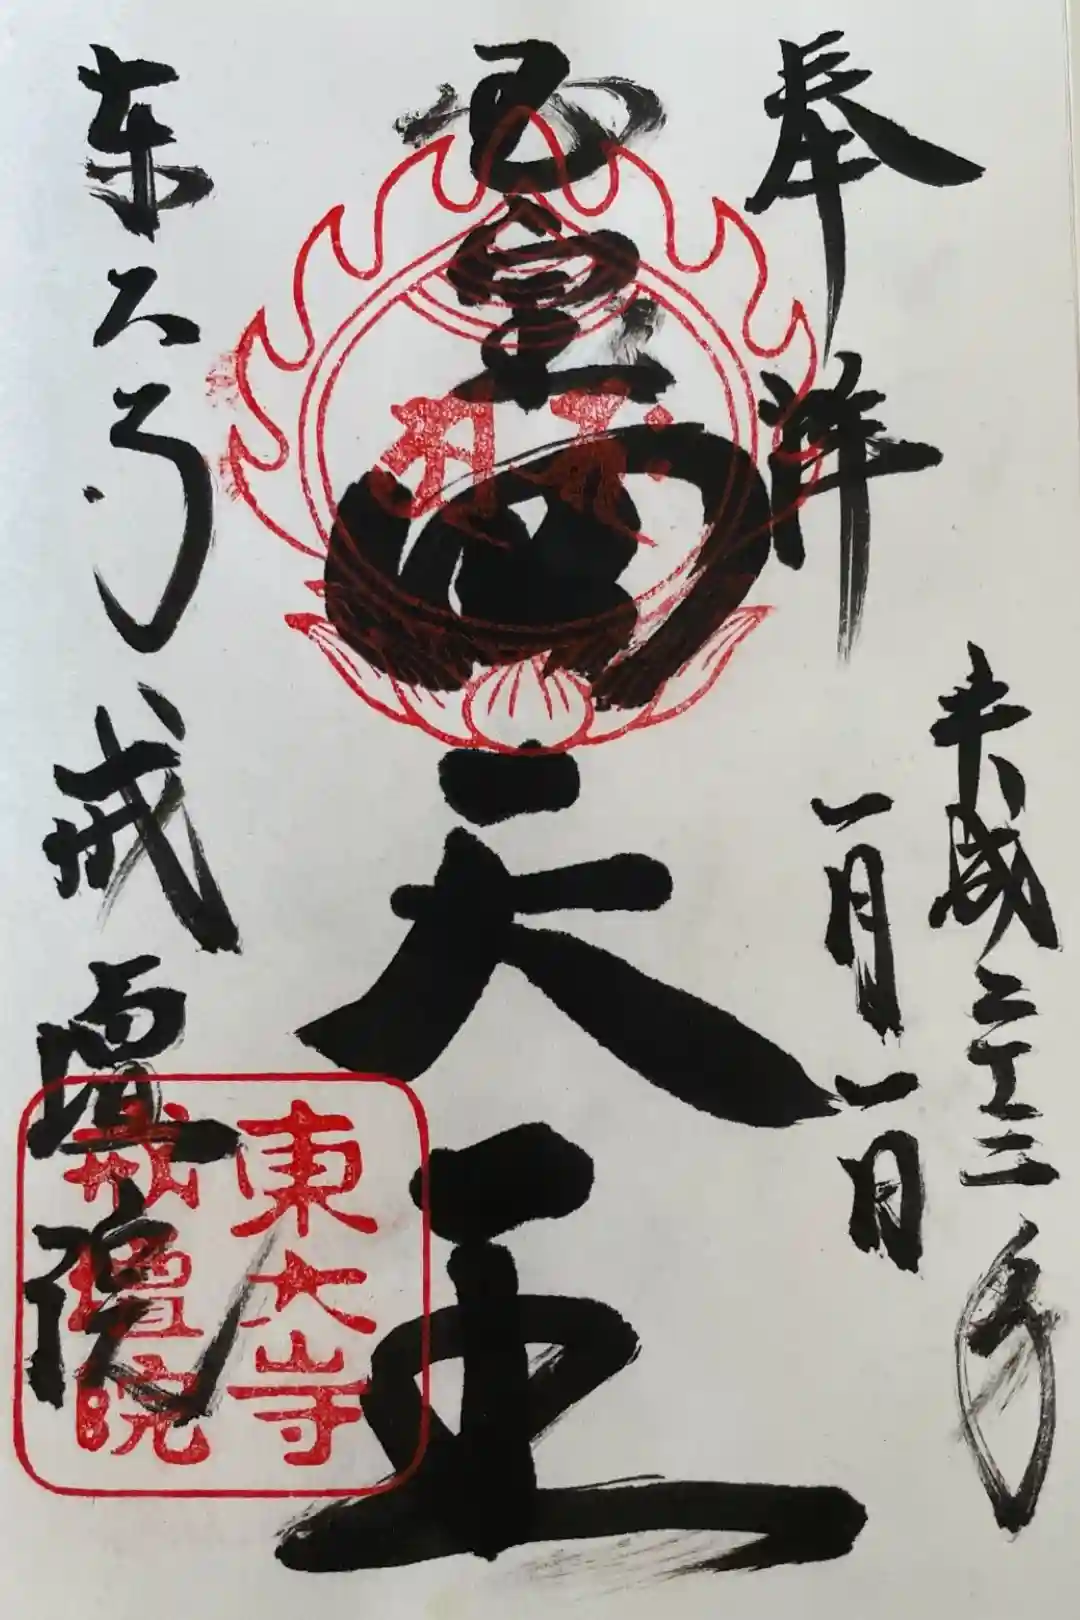 奉拝
平成二十三年
一月一日
四天王
東大寺戒壇院
東大寺
戒壇院